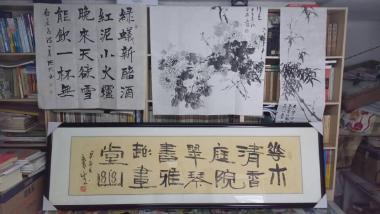 綠蟻新醅酒
紅泥小火爐
晚來天欲雪
能飲一杯無
幾木
清香
庭院
翠琴
書雅
趣畫
堂幽